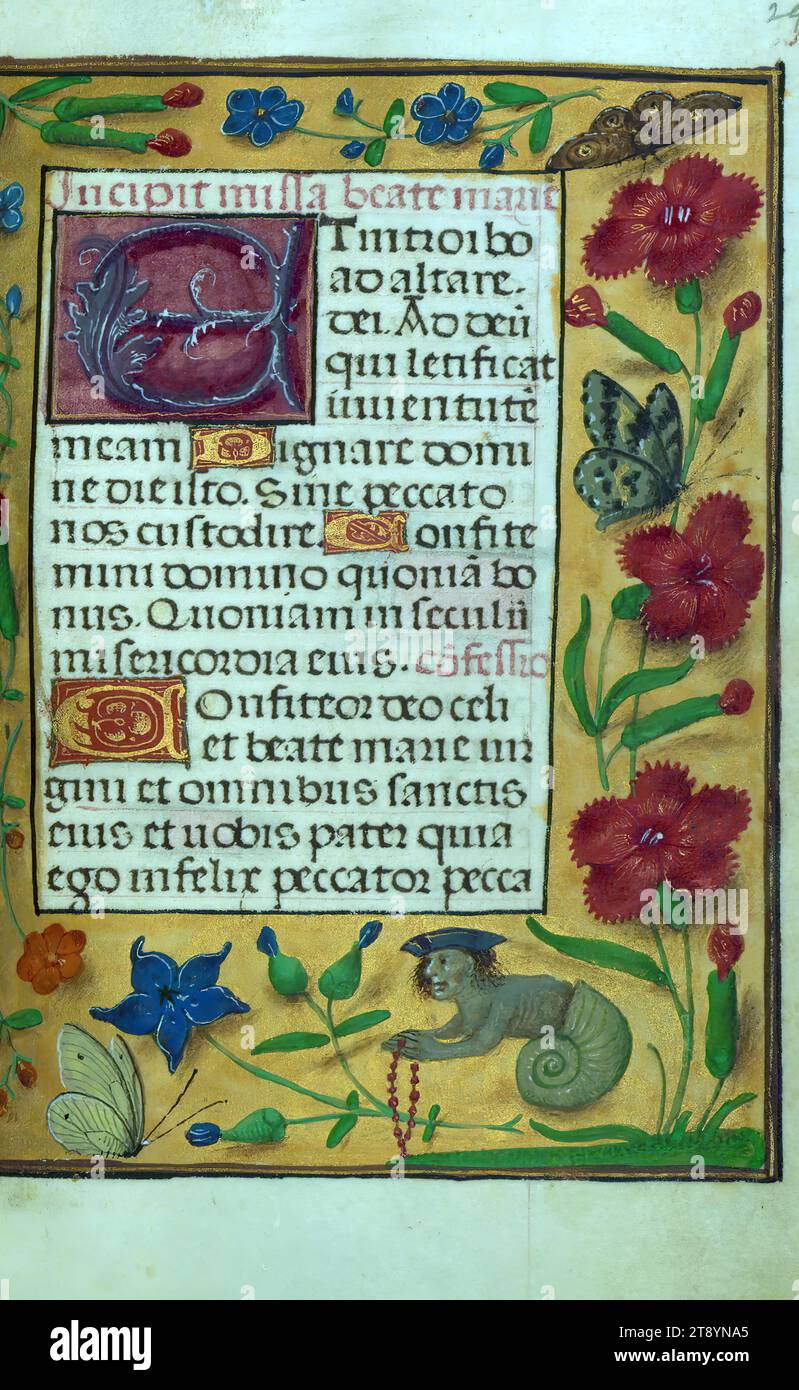 29
Incipit missa beate marie
Et introibo
ad altare.
dei. Ad deū
qui letificat
iuuentutē
meam Dignare domi
ne die isto. Sine peccato
nos custodire. Confite
mini domino quoniā bo
nus. Quoniam in seculū
misericordia eius. cōfessio
Confiteor deo celi
et beate marie uir
gini et omnibus sanctis
eius et uobis pater quia
ego infelix peccator pecca
alamy
Image ID: 2T8YNA5
www.alamy.com